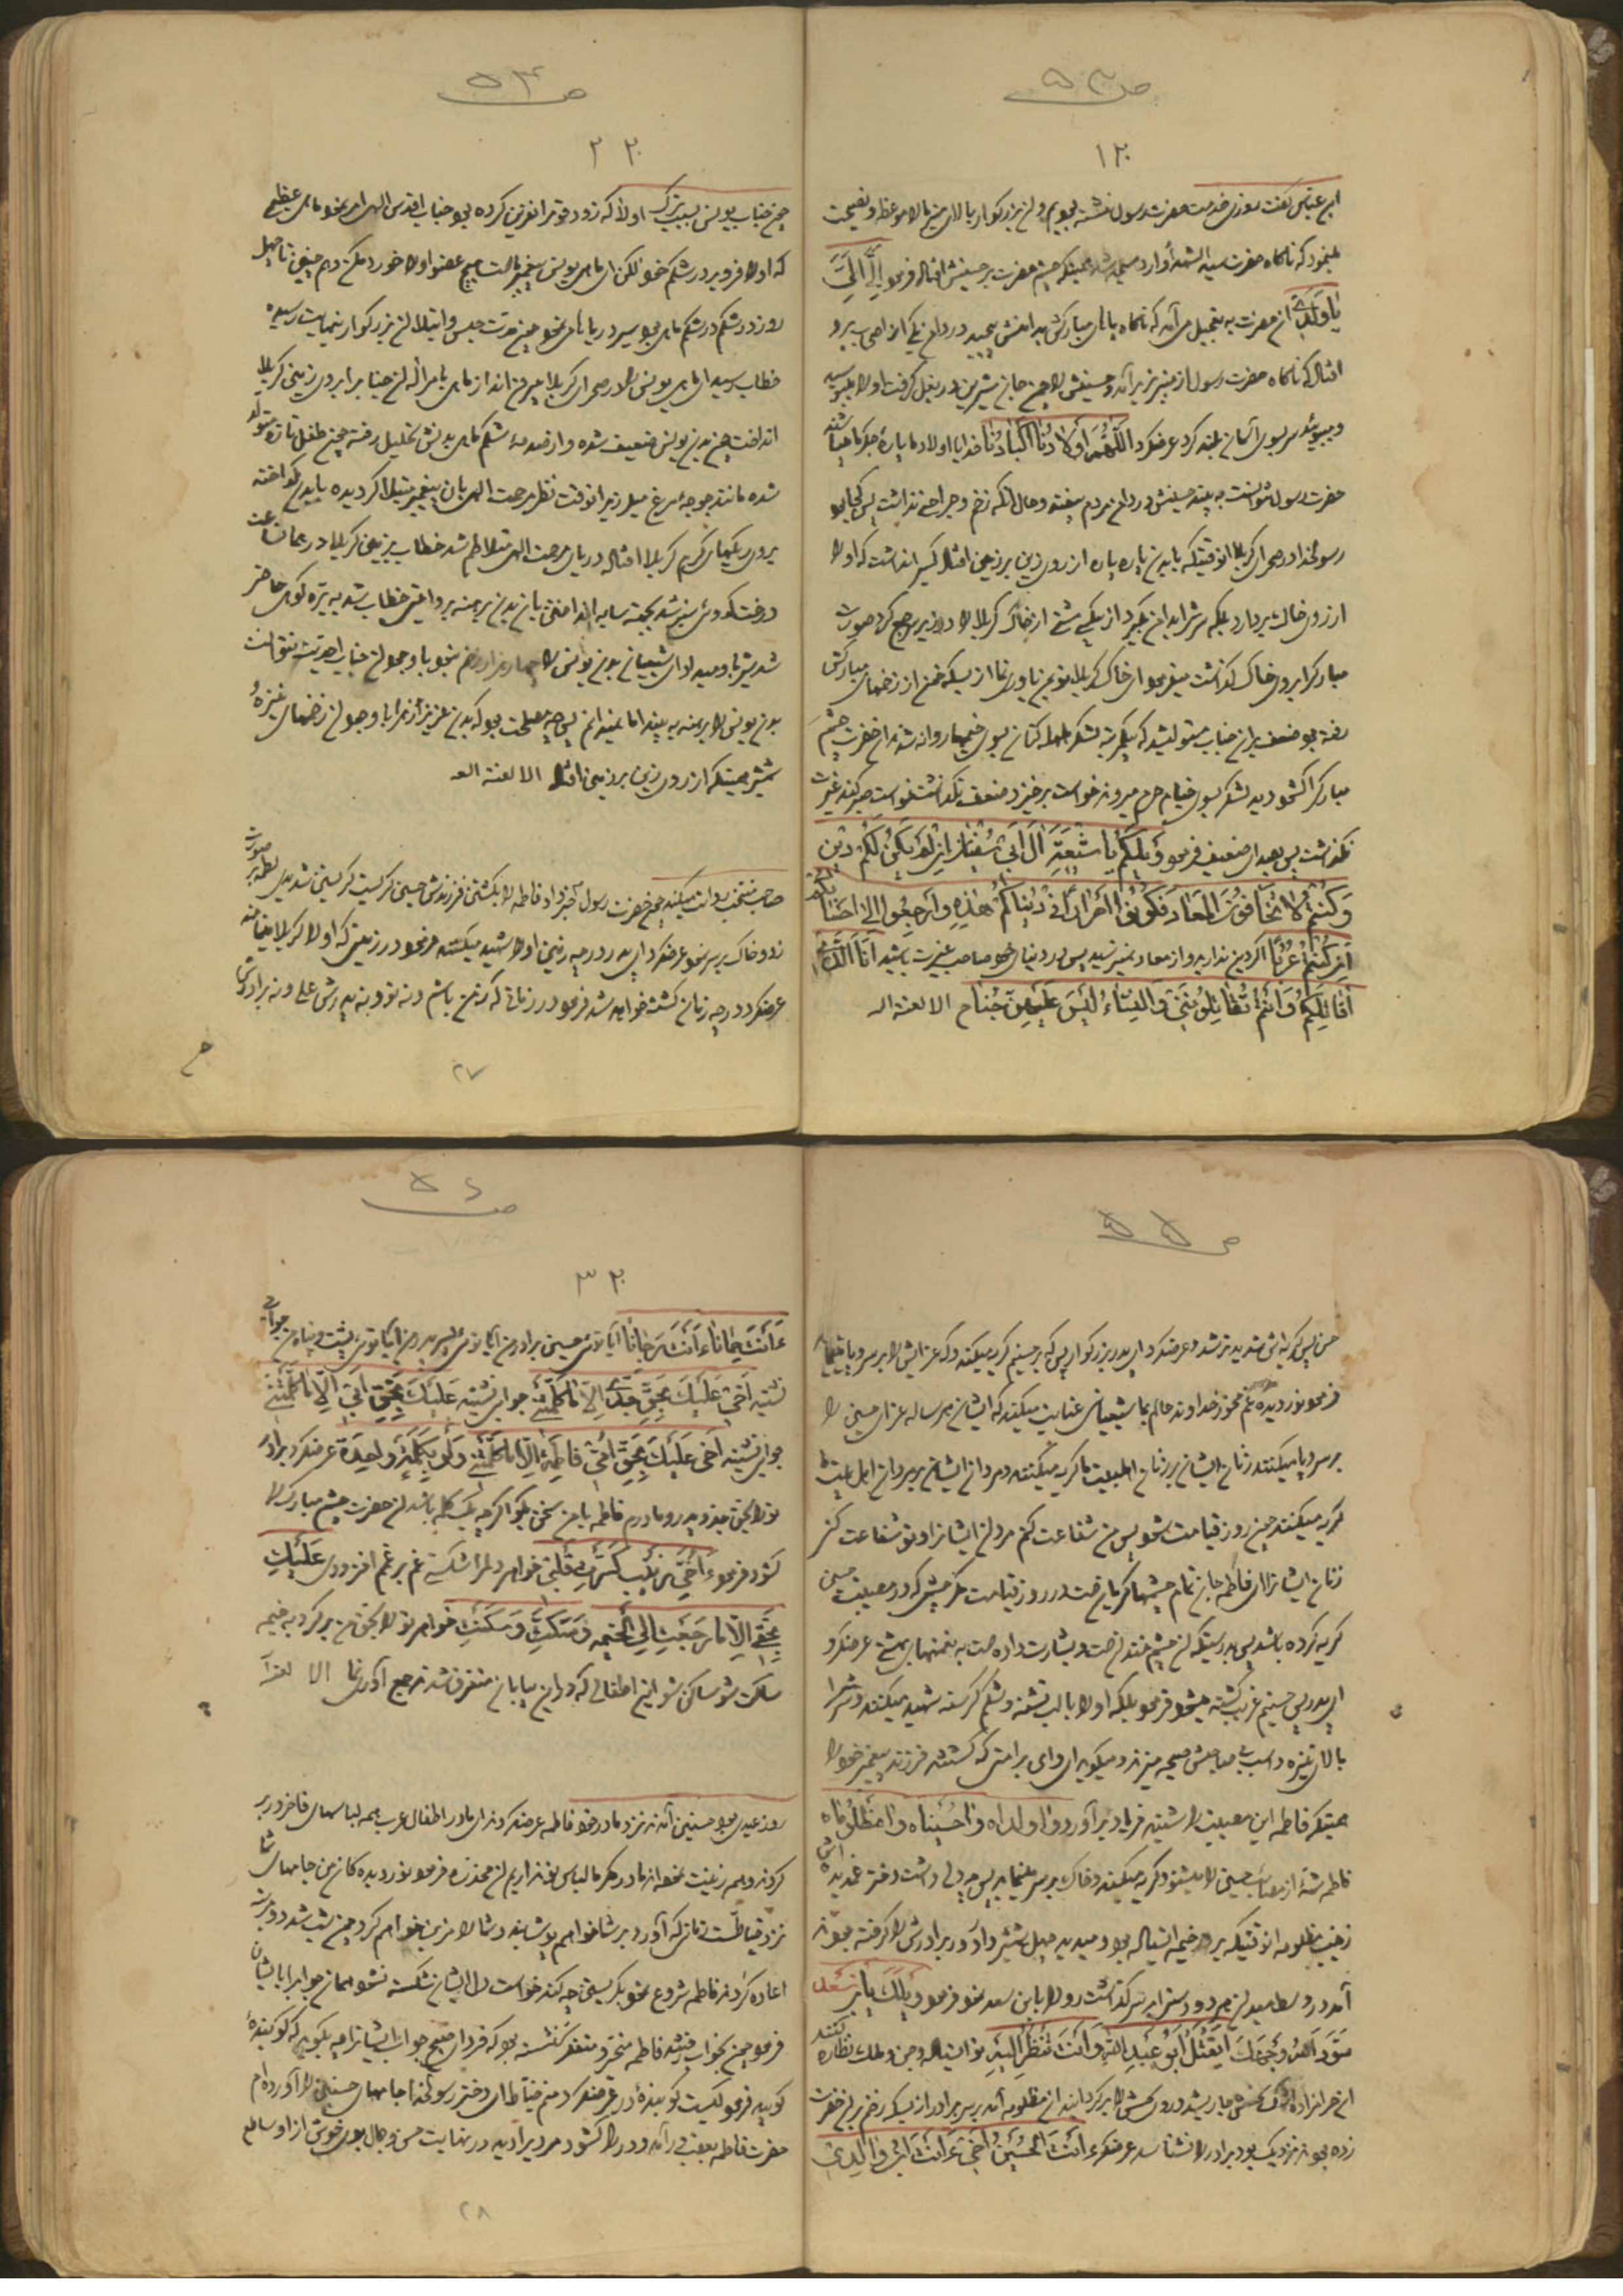 ص ۵۳
۱۲
ابن عباس گفت روزی خدمت حضرت رسول نشسته بودیم و آن بزرگوار بالای منبر بالا موعظه و نصیحت
مینمود که ناگاه حضرت سید الشهدا وارد مسجد شد همینکه چشم حضرت بر حسینش افتاد فرمود اِلَیَّ اِلَیَّ
یا وَلَدی آن حضرت به تعجیل می آمد که ناگاه پای مبارکش بدامنش پیچید در دامن یکی از اصحاب برو
افتاد که ناگاه حضرت رسول از منبر بزیر آمد و حسینش را چون جان شیرین در بغل گرفت او را میبوسید
و میبوئید سر بسوی آسمان بلند کرد عرضکرد اَللّهُمَّ اَوْلادُنا اَکْبادُنا خدایا اولاد ما پاره جگر ما میباشند
حضرت رسول نتوانست به بیند حسینش در دامن مردم بیفتد و حال آنکه زخم و جراحتی نداشت پس کجا بود
رسولخدا در صحرای کربلا انوقتیکه با بدن پاره پاره از روی زین بر زمین افتاد کسی را نداشت که او را
از روی خاک بردارد بلکه سرش را بدامن بگیرد از بیکسی مشتی از خاک کربلا را در زیر سر جمع کرد صورت
مبارک را بروی خاک گذاشت میفرمود ای خاک کربلا تو بمن یاوری نما از بسکه خون از زخمهای مبارکش
رفته بود ضعف بر آن جناب مستولی شد که یکمرتبه لشکر کنان بسوی خیمها روانه شدند آن حضرت چشم
مبارک را گشود دید لشکر بسوی خیام حرم میروند خواست برخیزد ضعف نگذاشت خواست صبر کند غیرت
نگذاشت پس بصدای ضعیف فرمود وَیْلَکُمْ یا شیعَةَ آلِ اَبی سُفْیانَ اِنْ لَمْ یَکُنْ لَکُمْ دینٌ
وَ کُنْتُمْ لا تَخافُونَ الْمَعادَ فَکُونُوا اَحْراراً فی دُنْیاکُمْ هذِهِ وَارْجِعُوا اِلی اَحْسابِکُمْ
اِنْ کُنْتُمْ عُرُباً اگر دین ندارید و از معاد نمیترسید پس در دنیای خود صاحب غیرت باشید اَنَا الَّذی
اُقاتِلُکُمْ وَ اَنْتُمْ تُقاتِلُونَنی وَ النِّساءُ لَیْسَ عَلَیْهِنَّ جُناح الا لعنة اله
ص ۵۴
۲۲
چون جناب یونس بسبب ترک اولی که زود قوم را نفرین کرده بود جناب اقدس الهی امر نمود ماهی عظیمی
که او را فرو برد در شکم خود لکن ای ماهی یونس پیغمبر ماست هیچ عضو او را خورد مکن و هم چنین تا چهل
روز در شکم ماهی بود سیر دریاها می نمود چون مدت حبس و ابتلاء آن بزرگوار بنهایت رسید
خطاب رسید ای ماهی یونس را در صحرای کربلا بیرون انداز ماهی بامر اله آن جناب را بروی زمین کربلا
انداخت چون بدن یونس ضعیف شده و از صدمه شکم ماهی بدنش تحلیل رفته چون طفل تازه متولد
شده مانند جوجه مرغ میلرزید انوقت نظر رحمت الهی بان پیغمبر مبتلا گردیده با بدن گداخته
بروی ریگهای گرم کربلا افتاده دریای رحمت الهی متلاطم شد خطاب بزمین کربلا در همان ساعت
درخت کدوئی سبز شد بجهة سایه انداختن بان بدن برهنه بروایتی خطاب شد به بزه کوهی حاضر
شد شیر باو میداد ای شیعیان بدن یونس را زخم نبود با وجود آن جناب احدیت نتوانست
بدن یونس را برهنه به بیند اما نمیدانم پس چه مصلحت بود که بدن عزیز زهرا با وجود آن زخمهای نیزه و
شمشیر همینکه از روی زین بر زمین افتاد الا لعنة اله
صاحب منتخب روایت میکند چون حضرت رسول خبر داد فاطمه را بکشتن فرزندش حسین گریست گریستنی شدید پس لطمه بر صورت
زد و خاک بر سر نمود عرضکرد ای پدر در چه زمین او را شهید میکنند فرمود در زمینی که او را کربلا مینامند
عرضکرد در چه زمان کشته خواهد شد فرمود در زمانی که نه من باشم و نه تو و نه پدرش علی و نه برادرش
۲۷
ص ۵۵
حسن پس گریه اش شدید تر شد و عرضکرد ای پدر بزرگوار پس که بر حسینم گریه میکند و که عزایش را بر سر و پا مینماید
فرمود نور دیده غم مخور خداوند عالم بما شیعیانی عنایت میکند که ایشان هر ساله عزای حسین را
بر سر و پا میکنند زنان ایشان بر زنان اهلبیت ما گریه میکنند و مردان ایشان بر مردان اهل بیت ما
گریه میکنند چون روز قیامت شود پس من شفاعت کنم مردان ایشانرا و تو شفاعت کنی
زنان ایشانرا ای فاطمه جان تمام چشمها گریان است در روز قیامت مگر چشمی که در مصیبت حسین
گریه کرده باشد پس بدرستیکه آن چشم خندان است و بشارت داده است به نعمتهای بهشت عرضکرد
ای پدر پس حسینم غریب کشته میشود فرمود بلکه او را با لب تشنه و شکم گرسنه شهید میکنند و سرش را
بالای نیزه و اسب بی صاحبش صیحه میزند و میگوید ای وای بر امتی که کشتند فرزند پیغمبر خود را
همینکه فاطمه این مصیبت را شنید فریاد برآورد وا ولداه وا حُسَیْناه وا مَظْلُوماه
فاطمه شمه از مصائب حسین را میشنود گریه میکند و خاک بر سر مینماید پس چه دلی داشت دختر غمدیده اش
زینب مظلومه انوقتیکه بر در خیمه ایستاده بود و میدید چهل شمشیر دار دور برادرش را گرفته بودند
آمد در وسط میدان هر دو دست را بر سر گذاشت رو را بابن سعد نمود فرمود وَیْلَکَ یَابْنَ سَعْد
سَوَّدَ اللهُ وَجْهَکَ اَیُقْتَلُ اَبُو عَبْدِ اللهِ وَ اَنْتَ تَنْظُرُ اِلَیْهِ تو ایستاده و من و ملک نظاره کنند
آن حرامزاده اشک نحسش جاری شد و روی نحسش را برگردانید آن مظلومه آمد بر سر برادر از بسکه زخم بر آن حضرت
زده بودند نزدیک بود برادر را نشناسد عرضکرد ءَاَنْتَ الْحُسَیْنُ اَخی ءَاَنْتَ ابْنُ والِدی
ص ۵۶
۳۲
ءَاَنْتَ حِمانا ءَاَنْتَ رَجانا ایا توئی حسین برادر من ایا توئی پسر پدر من ایا توئی پشت و پناه من جوابی
نشنید اَخی عَلَیْکَ بِحَقِّ جَدّی اِلّا ما کَلَّمْتَنی جوابی نشنید عَلَیْکَ بِحَقِّ اَبی اِلّا ما کَلَّمْتَنی
جوابی نشنید اَخی عَلَیْکَ بِحَقِّ اُمّی فاطِمَةَ اِلّا ما کَلَّمْتَنی وَ لَوْ بِکَلِمَةٍ واحِدَة عرضکرد برادر
تو را بحق جد و پدر و مادرم فاطمه با من سخن بگو اگر چه یک کلمه باشد آن حضرت چشم مبارک را
گشود فرمود ءَ اُخَیَّ زَیْنَب کَسَّرْتِ قَلْبی خواهر دلم را شکستی غم بر غم افزودی عَلَیْکِ
بِحَقّی اِلّا ما رَجَعْتِ اِلَی الْخَیْمَه وَ سَکَتِّ وَ سَکَنْتِ خواهر تو را بحق من برگرد به خیمه
ساکت شو ساکن شو این اطفالی که در این بیابان متفرق شدند جمع آوری نما الا لعنة
روز عیدی بود حسنین آمدند نزد مادر خود فاطمه عرضکردند ای مادر اطفال عرب همه لباسهای فاخر در بر
کردند و هم زینت نموده اند مادر مگر ما لباس نو نداریم آن مخدره فرمود نور دیده گان من جامهای شما
نزد خیاط است زمانی که آورد بر شما خواهم پوشانید و شما را مزین خواهم کرد چون شب شد دو مرتبه
اعاده کردند فاطمه شروع نمود بگریستن چه کند خواست دل ایشان شکسته نشود همان جواب را بایشان
فرمود چون بخواب رفتند فاطمه متحیر و متفکر نشسته بود که فردا صبح جواب ایشانرا چه بگوید که کوبنده
کوبید فرمود کیست کوبنده در عرضکرد منم خیاط ای دختر رسولخدا جامهای حسنین را آورده ام
حضرت فاطمه بعقب در آمد و در را گشود مردیرا دید در نهایت حسن و جمال بوی خوش از او ساطع
۲۸